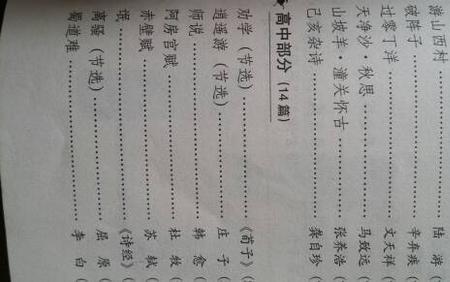 游山西村……………………陆 游（
破阵子……………………辛弃疾（
过零丁洋……………………文天祥（
天净沙·秋思……………………马致远（
山坡羊·潼关怀古……………………张养浩（
己亥杂诗……………………龚自珍（
高中部分（14篇）
劝学（节选）……………………《荀子》（
逍遥游（节选）……………………庄 子（
师说……………………韩 愈（
阿房宫赋……………………杜 牧（
赤壁赋……………………苏 轼（
氓……………………《诗经》（
离骚（节选）……………………屈 原（
蜀道难……………………李 白（